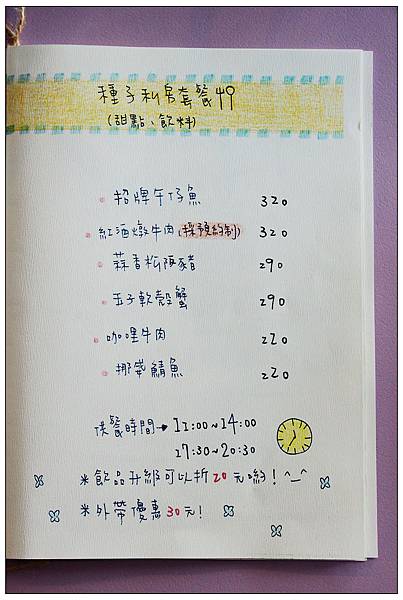 種子私房套餐
(甜點、飲料)
招牌午仔魚 320
紅酒燉牛肉(採預約制) 320
蒜香松阪豬 290
玉子軟殼蟹 290
咖哩牛肉 220
挪威鯖魚 220
供餐時間→11:00~14:00
17:30~20:30
※飲品升級可以折20元喲!^_^
※外帶優惠30元!